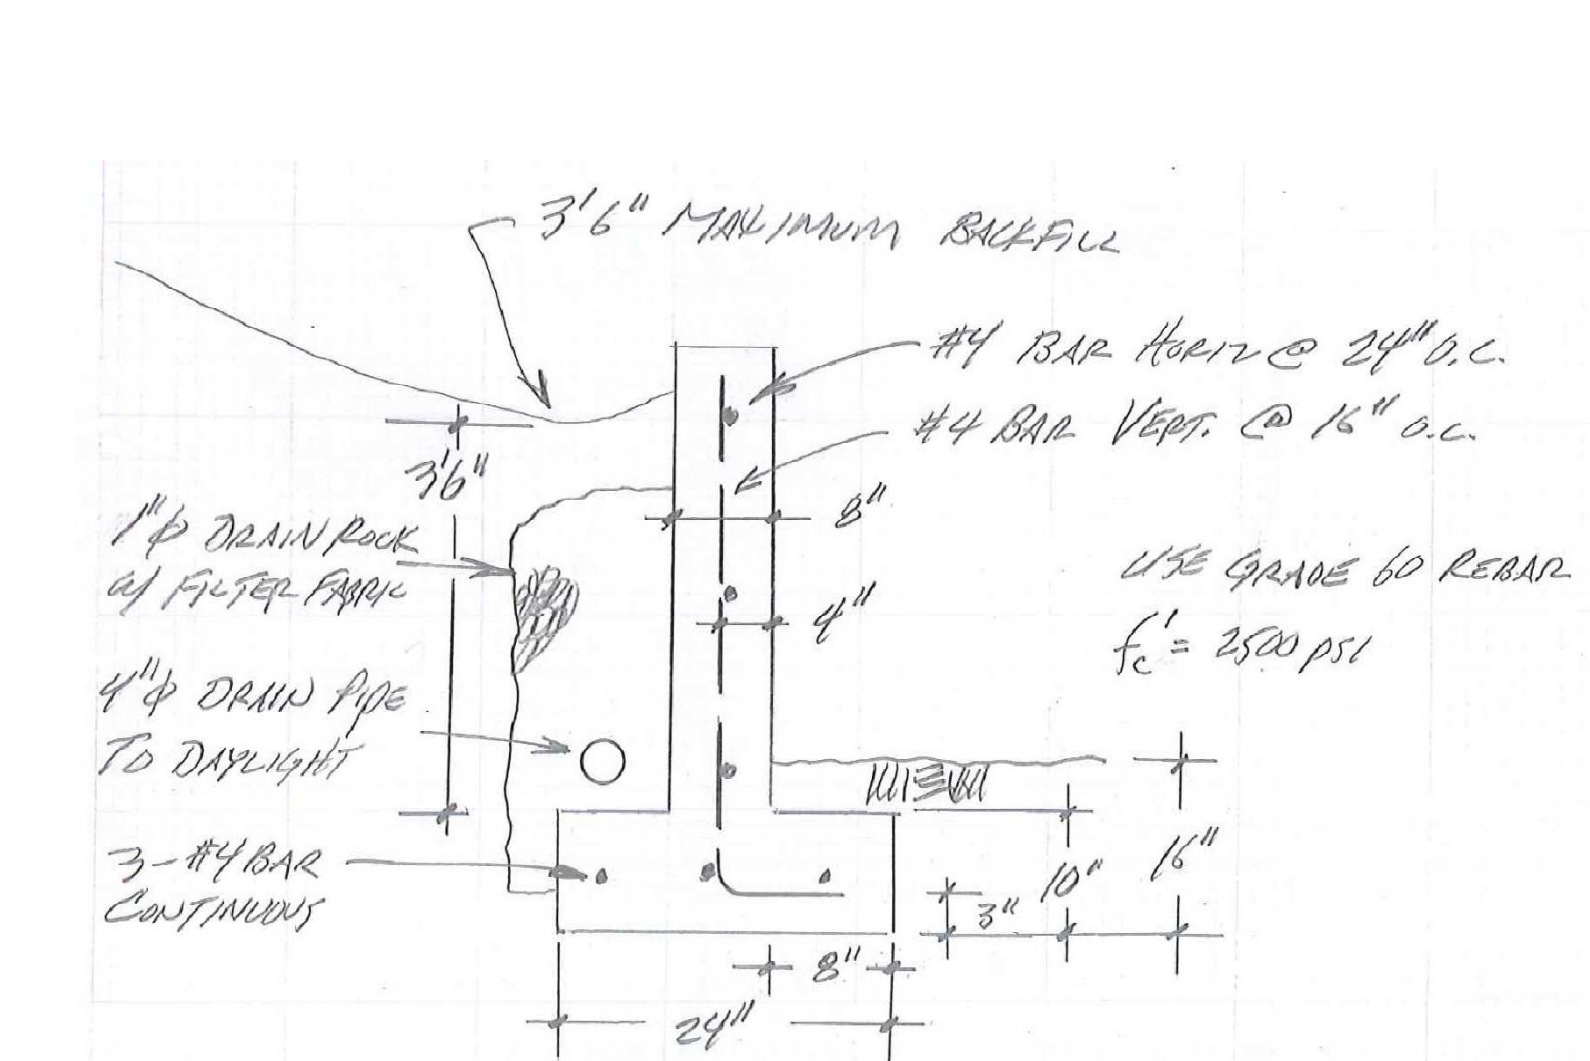 3'6" MAXIMUM BACKFILL
#4 BAR HORIZ @ 24" O.C.
#4 BAR VERT. @ 16" O.C.
3'6"
8"
1"ϕ DRAIN ROCK
W/ FILTER FABRIC
USE GRADE 60 REBAR
f'c = 2500 PSI
4"
4"ϕ DRAIN PIPE
TO DAYLIGHT
3-#4 BAR
CONTINUOUS
3"
10"
16"
8"
24"